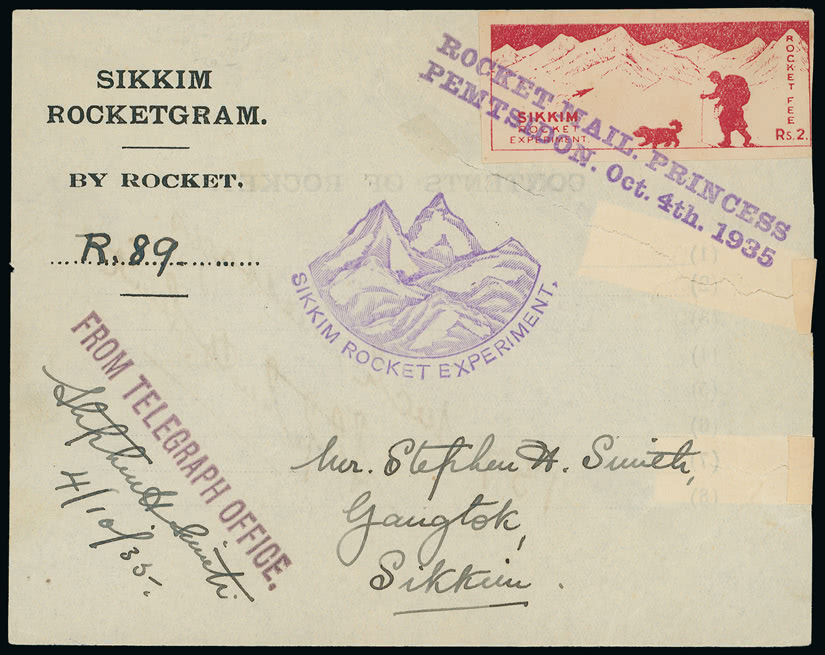 SIKKIM
ROCKETGRAM.
BY ROCKET.
R.89.
SIKKIM
ROCKET
EXPERIMENT.
ROCKET FEE
Rs.2.
ROCKET MAIL. PRINCESS
PEMTSEDON. Oct. 4th. 1935
SIKKIM ROCKET EXPERIMENT,
FROM TELEGRAPH OFFICE.
Stephen H Smith
4/10/35.
Mr. Stephen H. Smith,
Gangtok,
Sikkim.